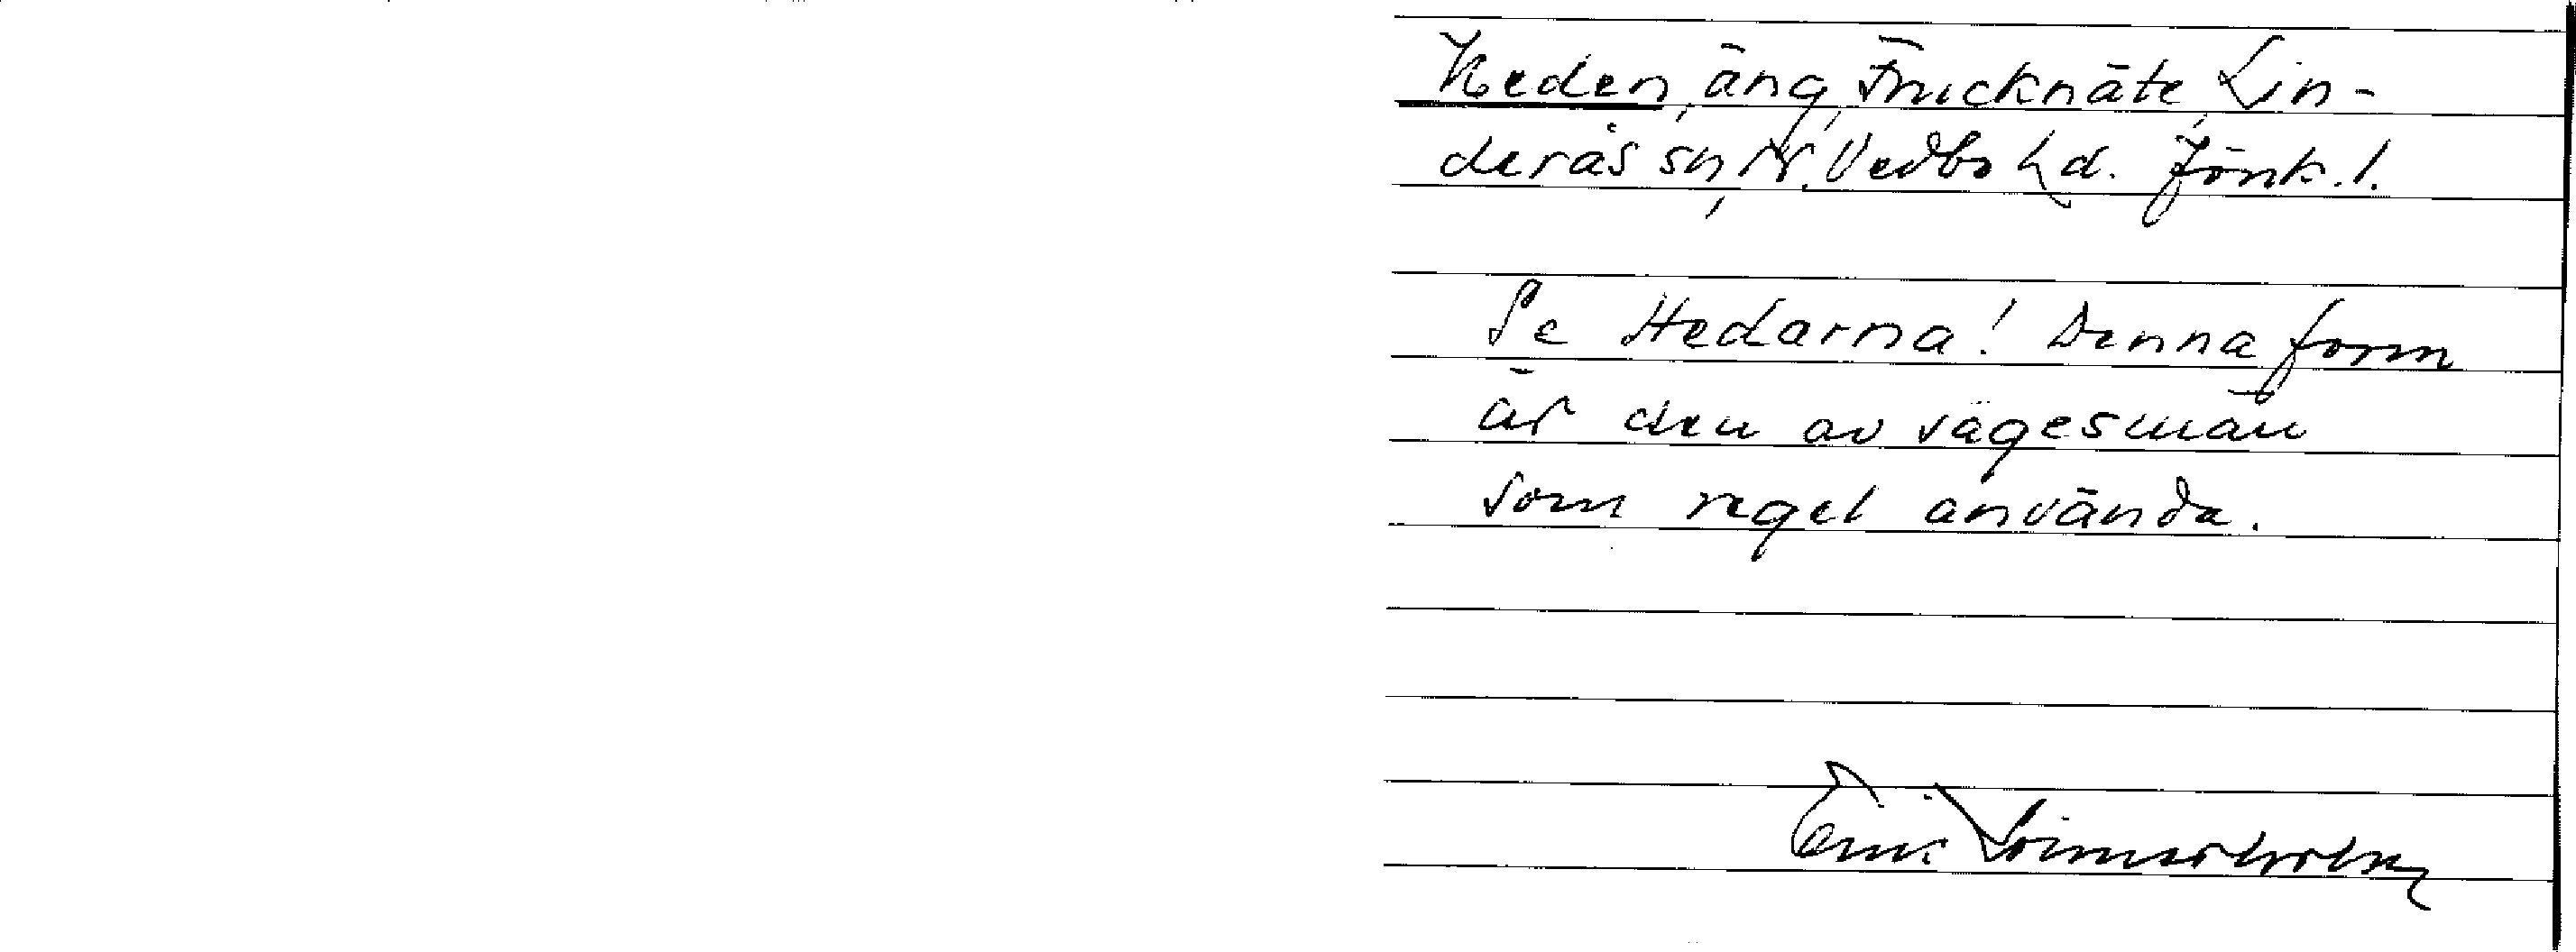 Heden, äng, Frucknäte, Lin-
derås sn, N. Vedbo hd. Jönk. l.
Se Hedarna! Denna form
är den av sagesmän
som regel använda.